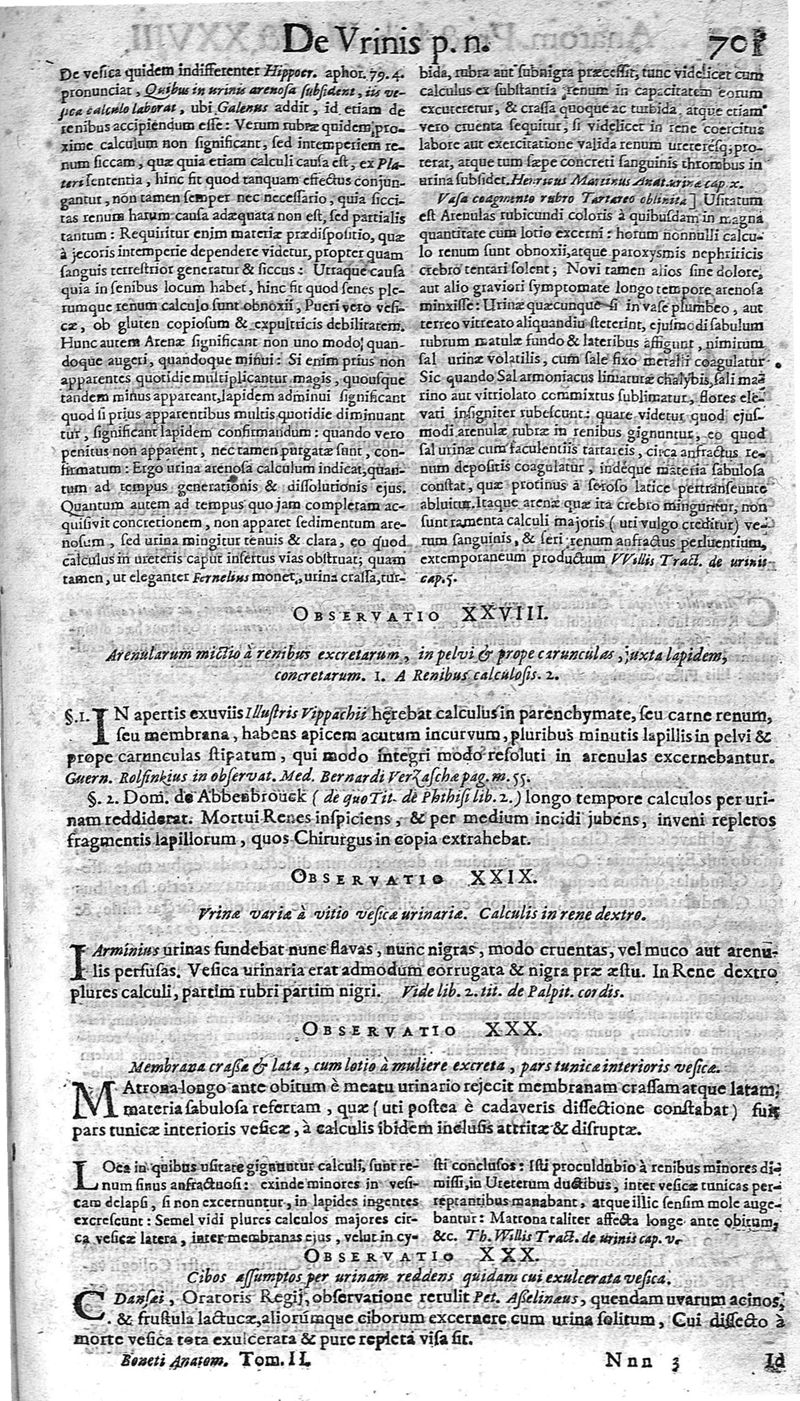 De Vrinis p. n. 701
De vesica quidem indifferenter Hippocr. aphor. 79. 4.
pronunciat, Quibus in urinis arenosa subsident, iis ve-
sica calculo laborat, ubi Galenus addit, id etiam de
renibus accipiendum esse: Verum rubræ quidem, pro-
xime calculum non significant, sed intemperiem re-
num siccam, quæ quia etiam calculi causa est, ex Pla-
teri sententia, hinc fit quod tanquam effectus conjun-
gantur, non tamen semper nec necessario, quia sicci-
tas renum harum causa adæquata non est, sed partialis
tantum: Requiritur enim materiæ prædispositio, quæ
à jecoris intemperie dependere videtur, propter quam
sanguis terrestrior generatur & siccus: Utraque causa
quia in senibus locum habet, hinc fit quod senes ple-
rumque renum calculo sunt obnoxii, Pueri vero vesi-
cæ, ob gluten copiosum & expultricis debilitatem.
Hunc autem Arenæ significant non uno modo, quan-
doque augeri, quandoque minui: Si enim prius non
apparentes quotidie multiplicantur magis, quousque
tandem minus appareant, lapidem adminui significant
quod si prius apparentibus multis quotidie diminuan
tur, significant lapidem confirmandum: quando vero
penitus non apparent, nec tamen purgatæ sunt, con-
firmatum: Ergo urina arenosa calculum indicat, quan-
tum ad tempus generationis & dissolutionis ejus.
Quantum autem ad tempus quo jam completam ac-
quisivit concretionem, non apparet sedimentum are-
nosum, sed urina mingitur tenuis & clara, eo quod
calculus in ureteris caput insertus vias obstruat; quam
tamen, ut eleganter Fernelius monet, urina crassa, tur-
bida, rubra aut subnigra præcessit, tunc videlicet cum
calculus ex substantia renum in capacitatem eorum
excuteretur, & crassa quoque ac turbida, atque etiam
vero cruenta sequitur, si videlicet in rene coercitus
labore aut exercitatione valida renum ureteresq; pro-
terat, atque tum sæpe concreti sanguinis thrombus in
urina subsidet. Henricus Martinus Anat. urinæ cap. x.
Vasa coagmento rubro Tartareo oblinita] Usitatum
est Arenulas rubicundi coloris à quibusdam in magna
quantitate cum lotio excerni: horum nonnulli calcu-
lo renum sunt obnoxii, atque paroxysmis nephriticis
crebro tentari solent; Novi tamen alios sine dolore,
aut alio graviori symptomate longo tempore arenosa
minxisse: Urinæ quæcunque si in vase plumbeo, aut
terreo vitreato aliquandiu steterint, ejusmodi sabulum
rubrum matulæ fundo & lateribus affigunt, nimirum
sal urinæ volatilis, cum sale fixo metalli coagulatur.
Sic quando Sal armoniacus limaturæ chalybis, sali ma-
rino aut vitriolato commixtus sublimatur, flores ele-
vati insigniter rubescunt: quare videtur quod ejus-
modi arenulæ rubræ in renibus gignuntur, eo quod
sal urinæ cum faculentiis tartareis, circa anfractus re-
num depositis coagulatur, indeque materia sabulosa
constat, quæ protinus à seroso latice pertranseunte
abluitur. Itaque arenæ quæ ita crebro minguntur, non
sunt ramenta calculi majoris (uti vulgo creditur) ve-
rum sanguinis, & seri renum anfractus perluentium,
extemporaneum productum VVillis Tract. de urinis
cap. 5.
OBSERVATIO XXVIII.
Arenularum mictio à renibus excretarum, in pelvi & prope carunculas, juxta lapidem,
concretarum. 1. A Renibus calculosis. 2.
§. 1. IN apertis exuviis Illustris Vippachii herebat calculus in parenchymate, seu carne renum,
seu membrana, habens apicem acutum incurvum, pluribus minutis lapillis in pelvi &
prope carunculas stipatum, qui modo integri modo resoluti in arenulas excernebantur.
Guern. Rolfinkius in observat. Med. Bernardi Verzaschæ pag. m. 55.
§. 2. Dom. de Abbenbrouck (de quo Tit. de Phthisi lib. 2.) longo tempore calculos per uri-
nam reddiderat. Mortui Renes inspiciens, & per medium incidi jubens, inveni repletos
fragmentis lapillorum, quos Chirurgus in copia extrahebat.
OBSERVATIO XXIX.
Vrinæ variæ à vitio vesicæ urinariæ. Calculis in rene dextro.
IArminius urinas fundebat nunc flavas, nunc nigras, modo cruentas, vel muco aut arenu-
lis persusas. Vesica urinaria erat admodum corrugata & nigra præ æstu. In Rene dextro
plures calculi, partim rubri partim nigri. Vide lib. 2. tit. de Palpit. cordis.
OBSERVATIO XXX.
Membrana crassa & lata, cum lotio à muliere excreta, pars tunicæ interioris vesicæ.
MAtrona longo ante obitum è meatu urinario rejecit membranam crassam atque latam;
materia sabulosa refertam, quæ (uti postea è cadaveris dissectione constabat) fuit
pars tunicæ interioris vesicæ, à calculis ibidem inclusis attritæ & disruptæ.
LOca in quibus usitate gignuntur calculi, sunt re-
num sinus anfractuosi: exinde minores in vesi-
cam delapsi, si non excernuntur, in lapides ingentes
excrescunt: Semel vidi plures calculos majores cir-
ca vesicæ latera, inter membranas ejus, velut in cy-
sti conclusos: Isti proculdubio à renibus minores di-
missi, in Ureterum ductibus, inter vesicæ tunicas per-
reptantibus manabant, atque illic sensim mole auge-
bantur: Matrona taliter affecta longe ante obitum,
&c. Th. Willis Tract. de urinis cap. v.
OBSERVATIO XXX.
Cibos assumptos per urinam reddens quidam cui exulcerata vesica.
C. Dansei, Oratoris Regij, observatione retulit Pet. Aselinæus, quendam uvarum acinos,
& frustula lactucæ, aliorumque ciborum excernere cum urina solitum, Cui dissecto à
morte vesica tota exulcerata & pure repleta visa sit.
Boneti Anatom. Tom. II. Nnn 3 Id